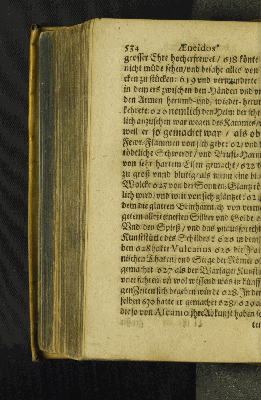 534 Æneidos
grosser Ehre hocherfrewet / 618 könte
nicht müde sehen / und besahe alles von
cken zu stücken: 619 und verwunderte
in dem ers zwischen den Händen und
den Armen herumb- und wieder-herum
kehrete: 620 nemlich den Helm der schr
lich anzusehen war wegen des Kammes /
weil er so gemacht war / als ob
Fewr-Flammen von sich gebe: 621 und
tödtliche Schwerdt / und Brust-Harni
von sehr hartem Eisen gemacht / 622
zu groß und blutig / als wenn eine bl
Wolcke 623 von der Sonnen Glantz
lich wird / und weit von sich glänzet: 624
dem die glatten Beinharnisch von verme
getem offt erneweten Silber und Golde
Und den Spieß / und das unaussprechl
Kunststücke des Schildes: 626 in dem
dem 628 hatte Vulcanus 626 die Itali
nischen Thaten / und Siege der Römer
gemachet 627 als der Warsager Kunst
unerfahren / ich wol wissend was in künff
gen Zeiten sich begeben würde 628. In dem
selben 630 hatte er gemachet 628 / 629
die so von Ascanio ihre Ankunfft haben